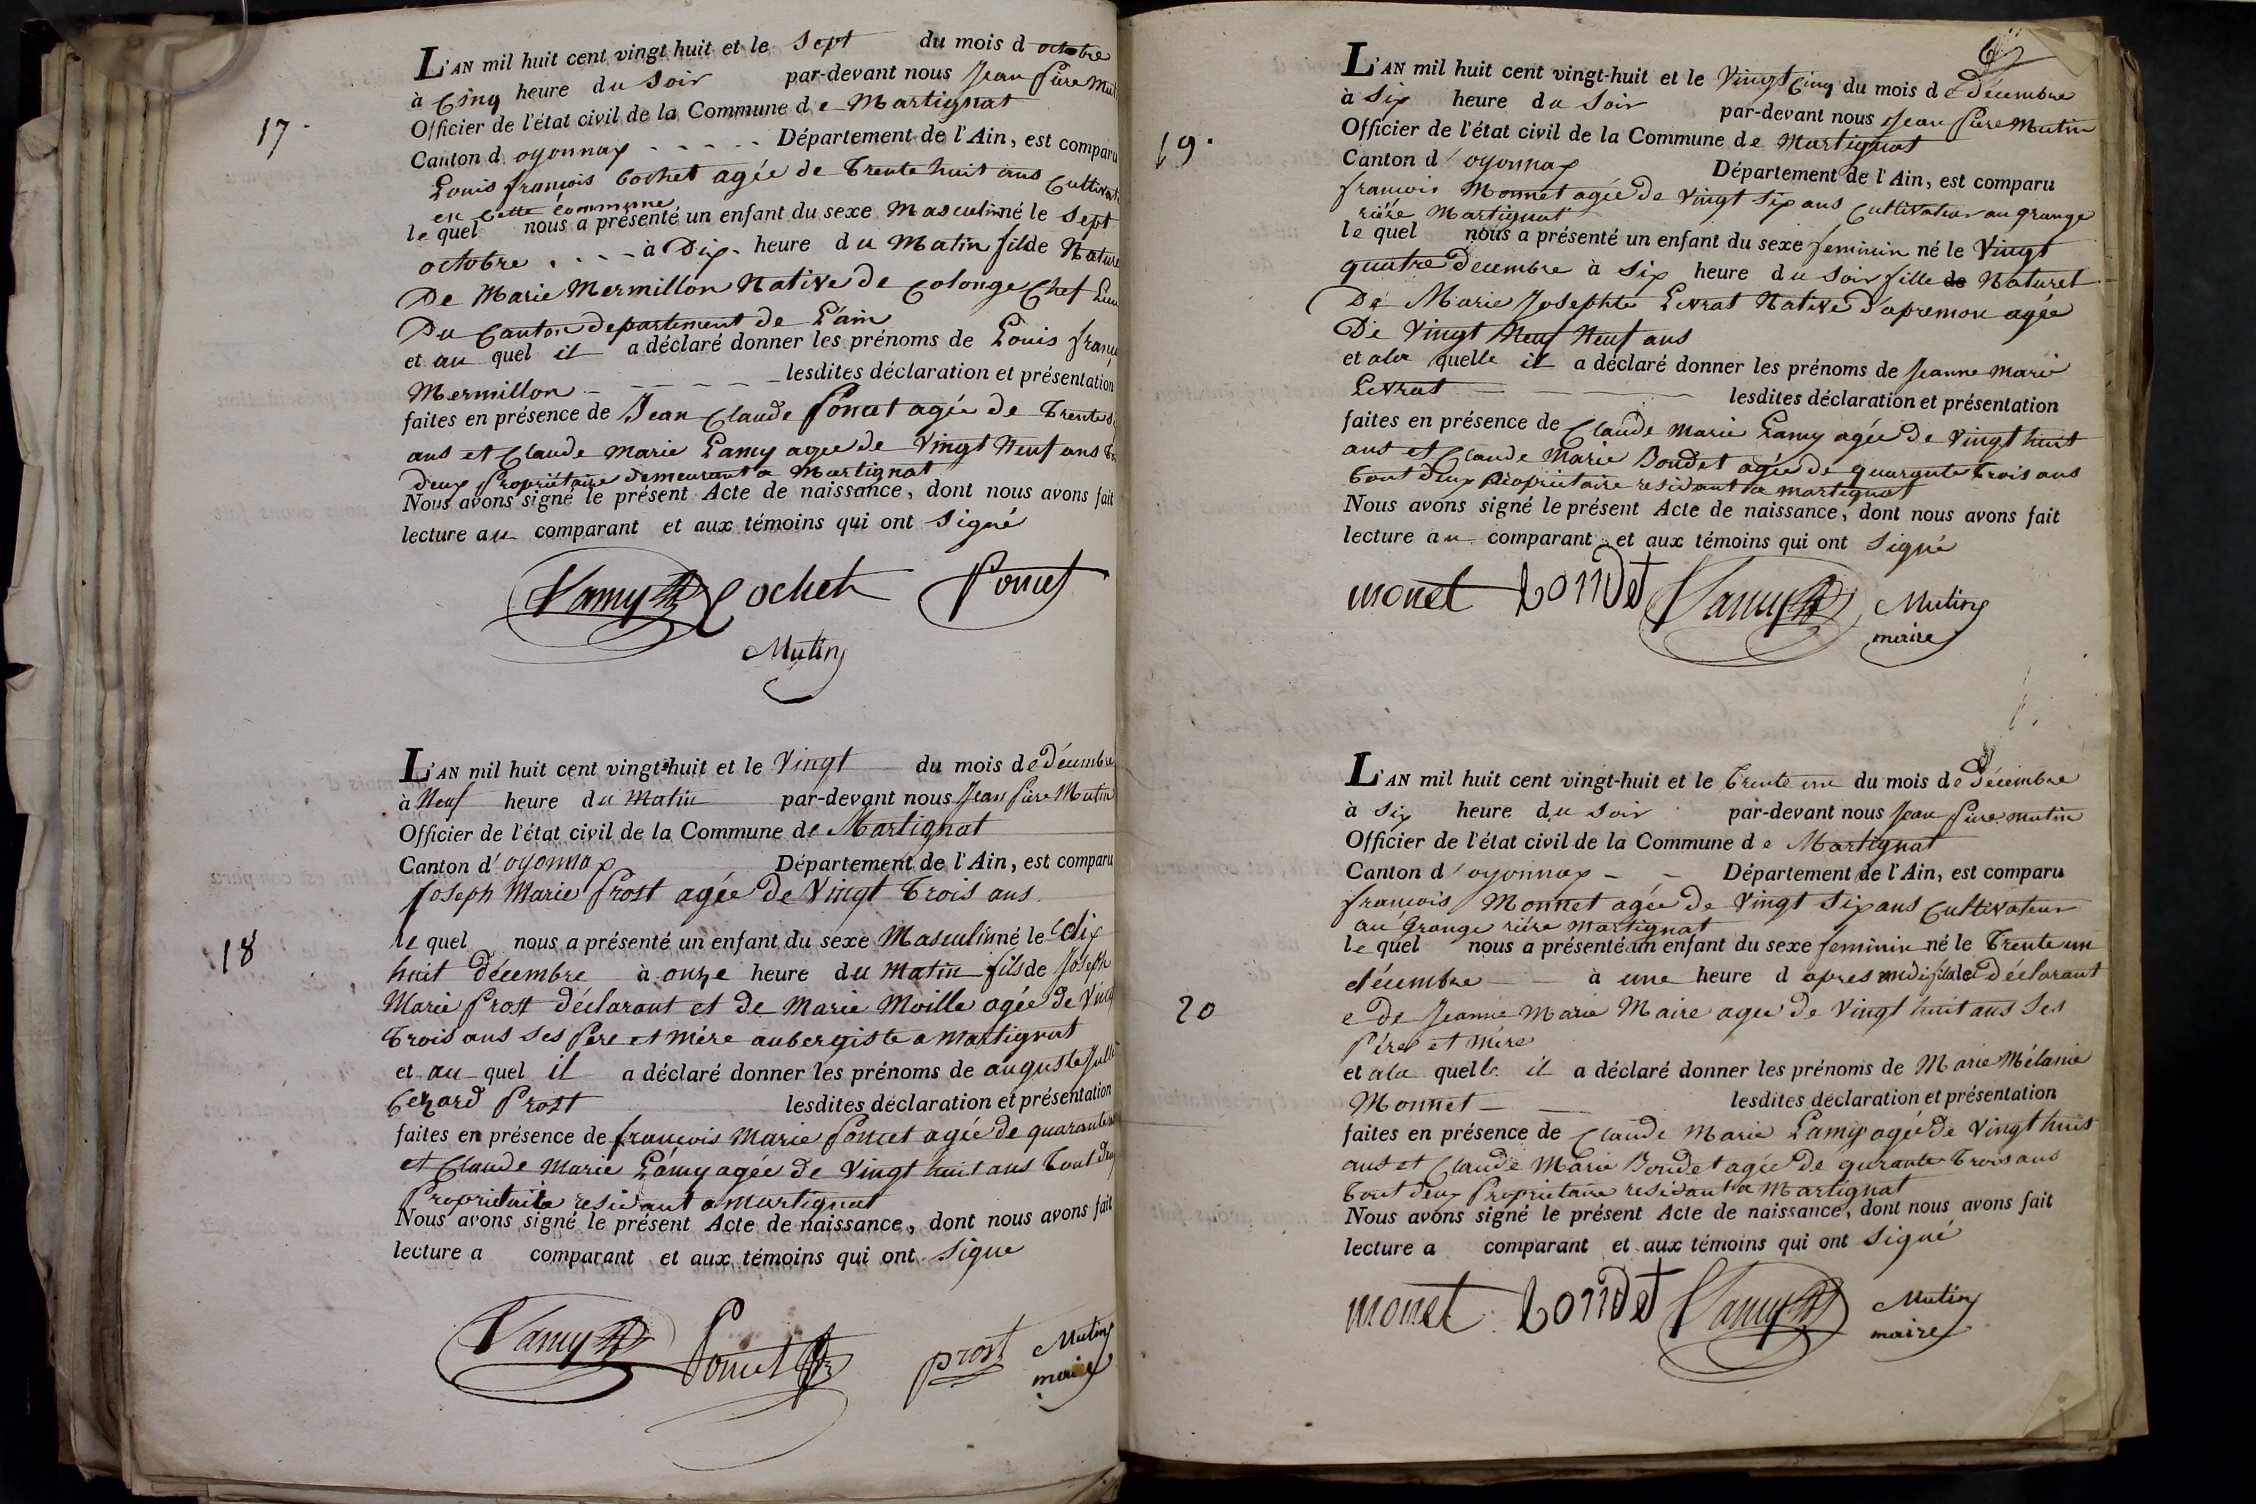 17.
L'AN mil huit cent vingt huit et le Sept du mois d octobre
à Cinq heure du Soir par-devant nous Jean Piere Mut
Officier de l'état civil de la Commune de Martignat
Canton d oyonnax - - - - - Département de l'Ain, est comparu
Louis françois Cochet agée de trente huit ans Cultivat
en Cette Commune
le quel nous a présenté un enfant du sexe Masculin né le Sept
octobre . . . - à Dix - heure du Matin fils de Nature
De Marie Mermillon Native de Colonge Chef Lieu
Du Canton departement de L'ain
et au quel il a déclaré donner les prénoms de Louis franç
Mermillon - - - - - - lesdites déclaration et présentation
faites en présence de Jean Claude Poncet agée de trente s
ans et Claude Marie Lamy agee de Vingt Neuf ans t
deux Propriétaire demeurant a Martignat
Nous avons signé le présent Acte de naissance, dont nous avons fait
lecture au comparant et aux témoins qui ont Signé
Lamy Cochet Poncet
Mutin
18
L'AN mil huit cent vingt-huit et le Vingt du mois de Décembre
à Neuf heure du Matin par-devant nous Jean Piere Mutin
Officier de l'état civil de la Commune de Martignat
Canton d'oyonnax Département de l'Ain, est comparu
Joseph Marie Prost agée de Vingt trois ans
le quel nous a présenté un enfant du sexe Masculin né le dix
huit décembre à onze heure du Matin fils de Joseph
Marie Prost déclarant et de Marie Moille agée de Vingt
trois ans Ses Pere et Mére aubergiste a Martignat
et au quel il a déclaré donner les prénoms de auguste Jull
Prost lesdites déclaration et présentation
faites en présence de françois Marie Poncet agée de quarante
et Claude Marie Lamy agée de Vingt huit ans tout deux
Propriétaire residant a Martignat
Nous avons signé le présent Acte de naissance, dont nous avons fait
lecture a comparant et aux témoins qui ont Signe
Lamy Poncet prost Mutin
maire
19.
L'AN mil huit cent vingt-huit et le Vingt Cinq du mois de Décembre
à Six heure du Soir par-devant nous Jean Piere Mutin
Officier de l'état civil de la Commune de Martignat
Canton d'oyonnax Département de l'Ain, est comparu
francois Monnet agée de Vingt Six ans Cultivateur au grange
riére Martignat
le quel nous a présenté un enfant du sexe feminin né le Vingt
quatre Decembre à Six heure du Soir fille de Naturel
De Marie Josephte Levrat Native d'apremon agée
De Vingt Neuf Neuf ans
et a la quelle il a déclaré donner les prénoms de Jeanne Marie
Levrat - - - lesdites déclaration et présentation
faites en présence de Claude Marie Lamy agée de Vingt huit
ans et Claude Marie Bondet agée de quarante trois ans
tout deux Propriétaire residant a Martignat
Nous avons signé le présent Acte de naissance, dont nous avons fait
lecture au comparant et aux témoins qui ont Signé
monet Bondet Lamy Mutin
maire
20
L'AN mil huit cent vingt-huit et le trente un du mois de Décembre
à Six heure du Soir par-devant nous Jean Piere Mutin
Officier de l'état civil de la Commune de Martignat
Canton d'oyonnax - - Département de l'Ain, est comparu
françois Monnet agée de Vingt Six ans Cultivateur
au Grange riére Martignat
le quel nous a présenté un enfant du sexe feminin né le trente un
décembre - - à une heure d apres midi fils de déclarant
e de Jeanne Marie Maire agee de Vingt huit ans Ses
Pére et Mére
et a la quelle il a déclaré donner les prénoms de Marie Mélanie
Monnet - - lesdites déclaration et présentation
faites en présence de Claude Marie Lamy agée de Vingt huit
ans et Claude Marie Bondet agée de qurante trois ans
tout deux Propriétaire residant a Martignat
Nous avons signé le présent Acte de naissance, dont nous avons fait
lecture a comparant et aux témoins qui ont Signé
monet Bondet Lamy Mutin
maire